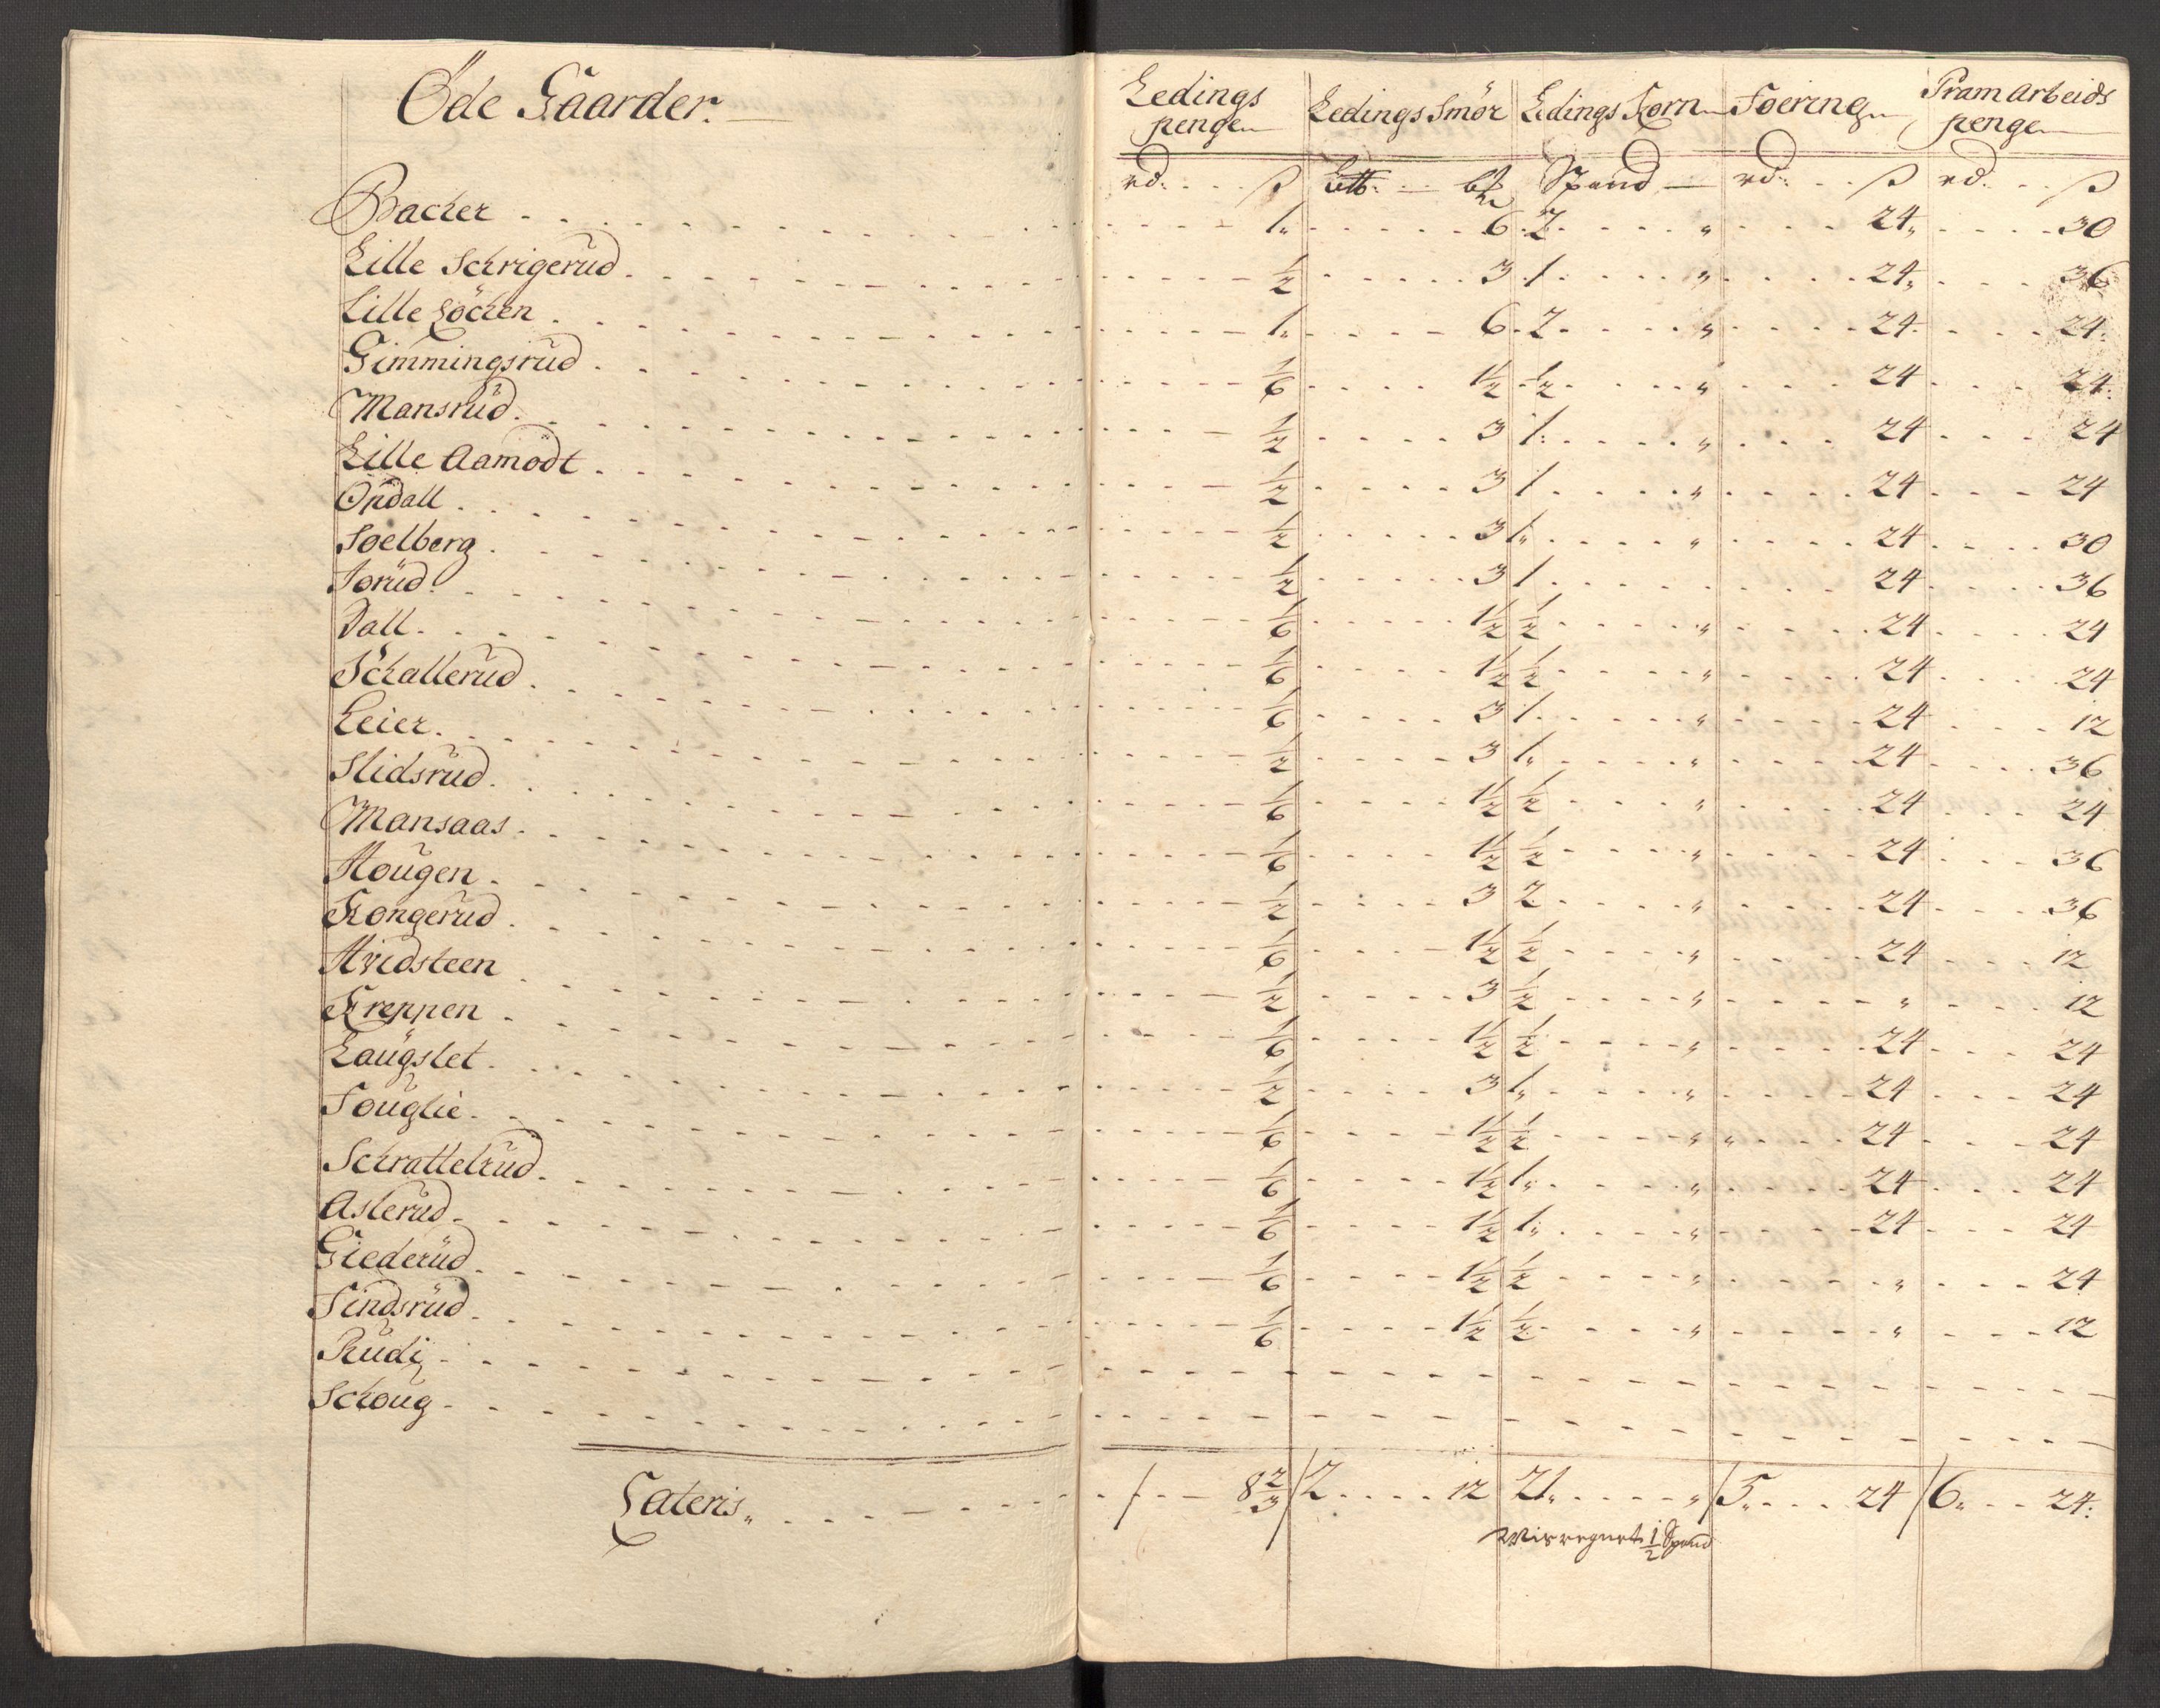 Øde Gaarder.
Ledings penge Ledings Smör Ledings Korn Foering Pram Arbeids penge
rd. ß Lttb. bℳ Spand rd. ß rd. ß
Bacher 1. 6. 2. " 24, 30
Lille Schrigerud 1/2 3 1. " 24, 36
Lille Löchen 1. 6. 2. " 24. 24.
Gimmingsrud 1/6 1 1/2 1/2 " 24 24.
Mansrud 1/2 3 1. " 24 24
Lille Aamodt 1/2 3 1 " 24 24
Opdall 1/2 3 1. " 24 30
Soelberg 1/2 3 1 24 36
Sorud 1/6 1 1/2 1/2 " 24 24
Dall 1/6 1 1/2 1/2 " 24 24
Schallerud 1/6 3 1. " 24 12
Leier 1/2 3 1. " 24 36
Slidsrud 1/6 1 1/2 1/2 " 24 24
Mansaas 1/6 1 1/2 1/2 " 24 36
Hougen 1/2 3 2 " 24 36
Kongerud 1/6 1 1/2 1/2 " 24 12
Hvidsteen 1/2 3 1/2 " " 12
Kreppen 1/6 1 1/2 1/2 " 24 24
Laugslet 1/2 3 1. " 24 24
Fouglie 1/6 1 1/2 1/2 " 24 24
Schrattelrud 1/6 1 1/2 1. " 24 24
Aslerud 1/6 1 1/2 1. " 24 24
Giederud 1/6 1 1/2 1/2 " " 24
Findsrud 1/6 1 1/2 1/2 " " 12
Rudi
Schoug
Lateris, 8 2/3 2 12 21. " 5. 24 6. 24.
Misregnet 1/2 Spand